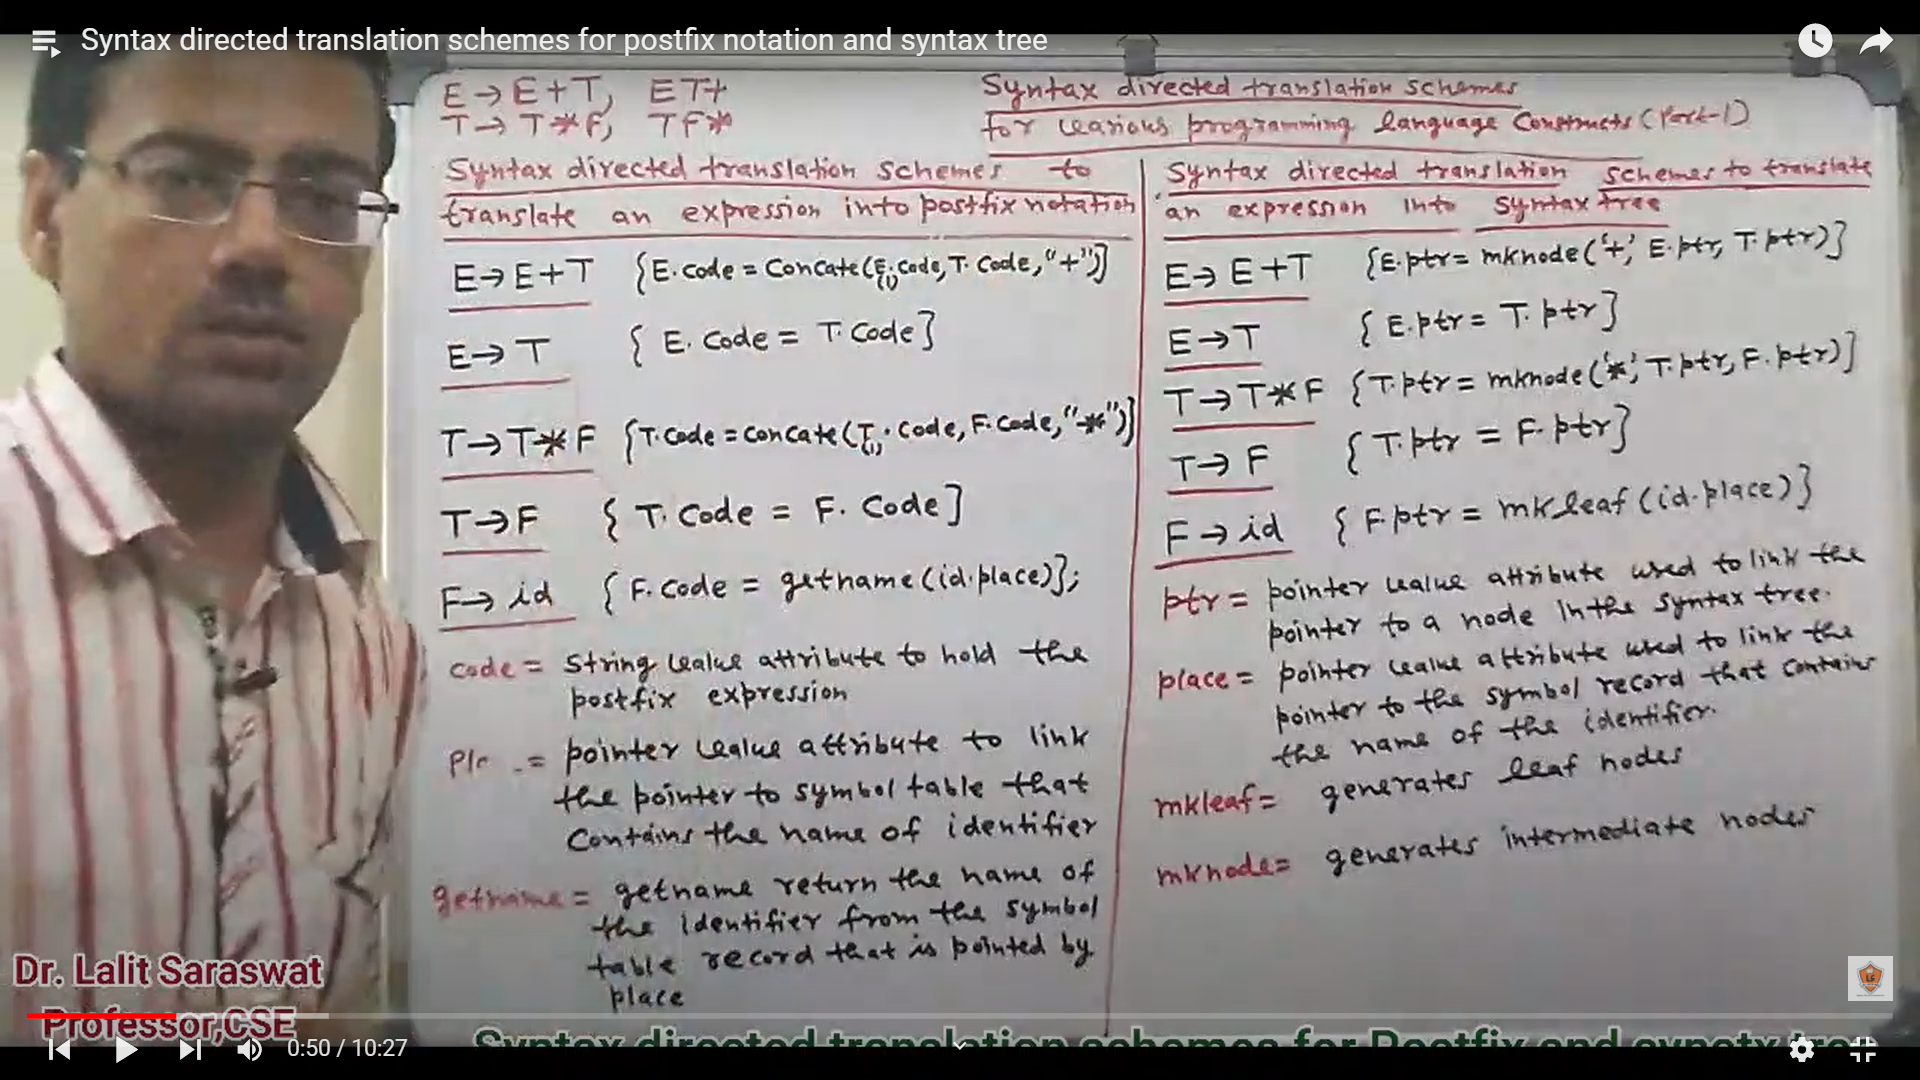 Syntax directed translation schemes for postfix notation and syntax tree
E → E + T, ET+
T → T * F, TF*
Syntax directed translation schemes
for various programming language Constructs (Part-1)
Syntax directed translation schemes to
translate an expression into postfix notation
E → E + T {E.code = Concate(E(1).code, T.Code, "+")}
E → T { E. Code = T. Code}
T → T * F {T.code = concate(T(1).code, F.code, "*")}
T → F { T. Code = F. Code}
F → id { F. Code = getname(id.place)};
code = string value attribute to hold the
postfix expression
= pointer value attribute to link
the pointer to symbol table that
Contains the name of identifier
getname = getname return the name of
the identifier from the symbol
table record that is pointed by
place
Syntax directed translation schemes to translate
an expression into syntax tree
E → E + T {E.ptr = mknode('+', E.ptr, T.ptr)}
E → T { E.ptr = T.ptr}
T → T * F {T.ptr = mknode('*', T.ptr, F.ptr)}
T → F { T.ptr = F.ptr}
F → id { F.ptr = mkleaf(id.place)}
ptr = pointer value attribute used to link the
pointer to a node in the syntax tree.
place = pointer value attribute used to link the
pointer to the symbol record that contains
the name of the identifier.
mkleaf = generates leaf nodes
mknode = generates intermediate nodes
Dr. Lalit Saraswat
Professor,CSE
Syntax directed translation schemes for Postfix and
0:50 / 10:27